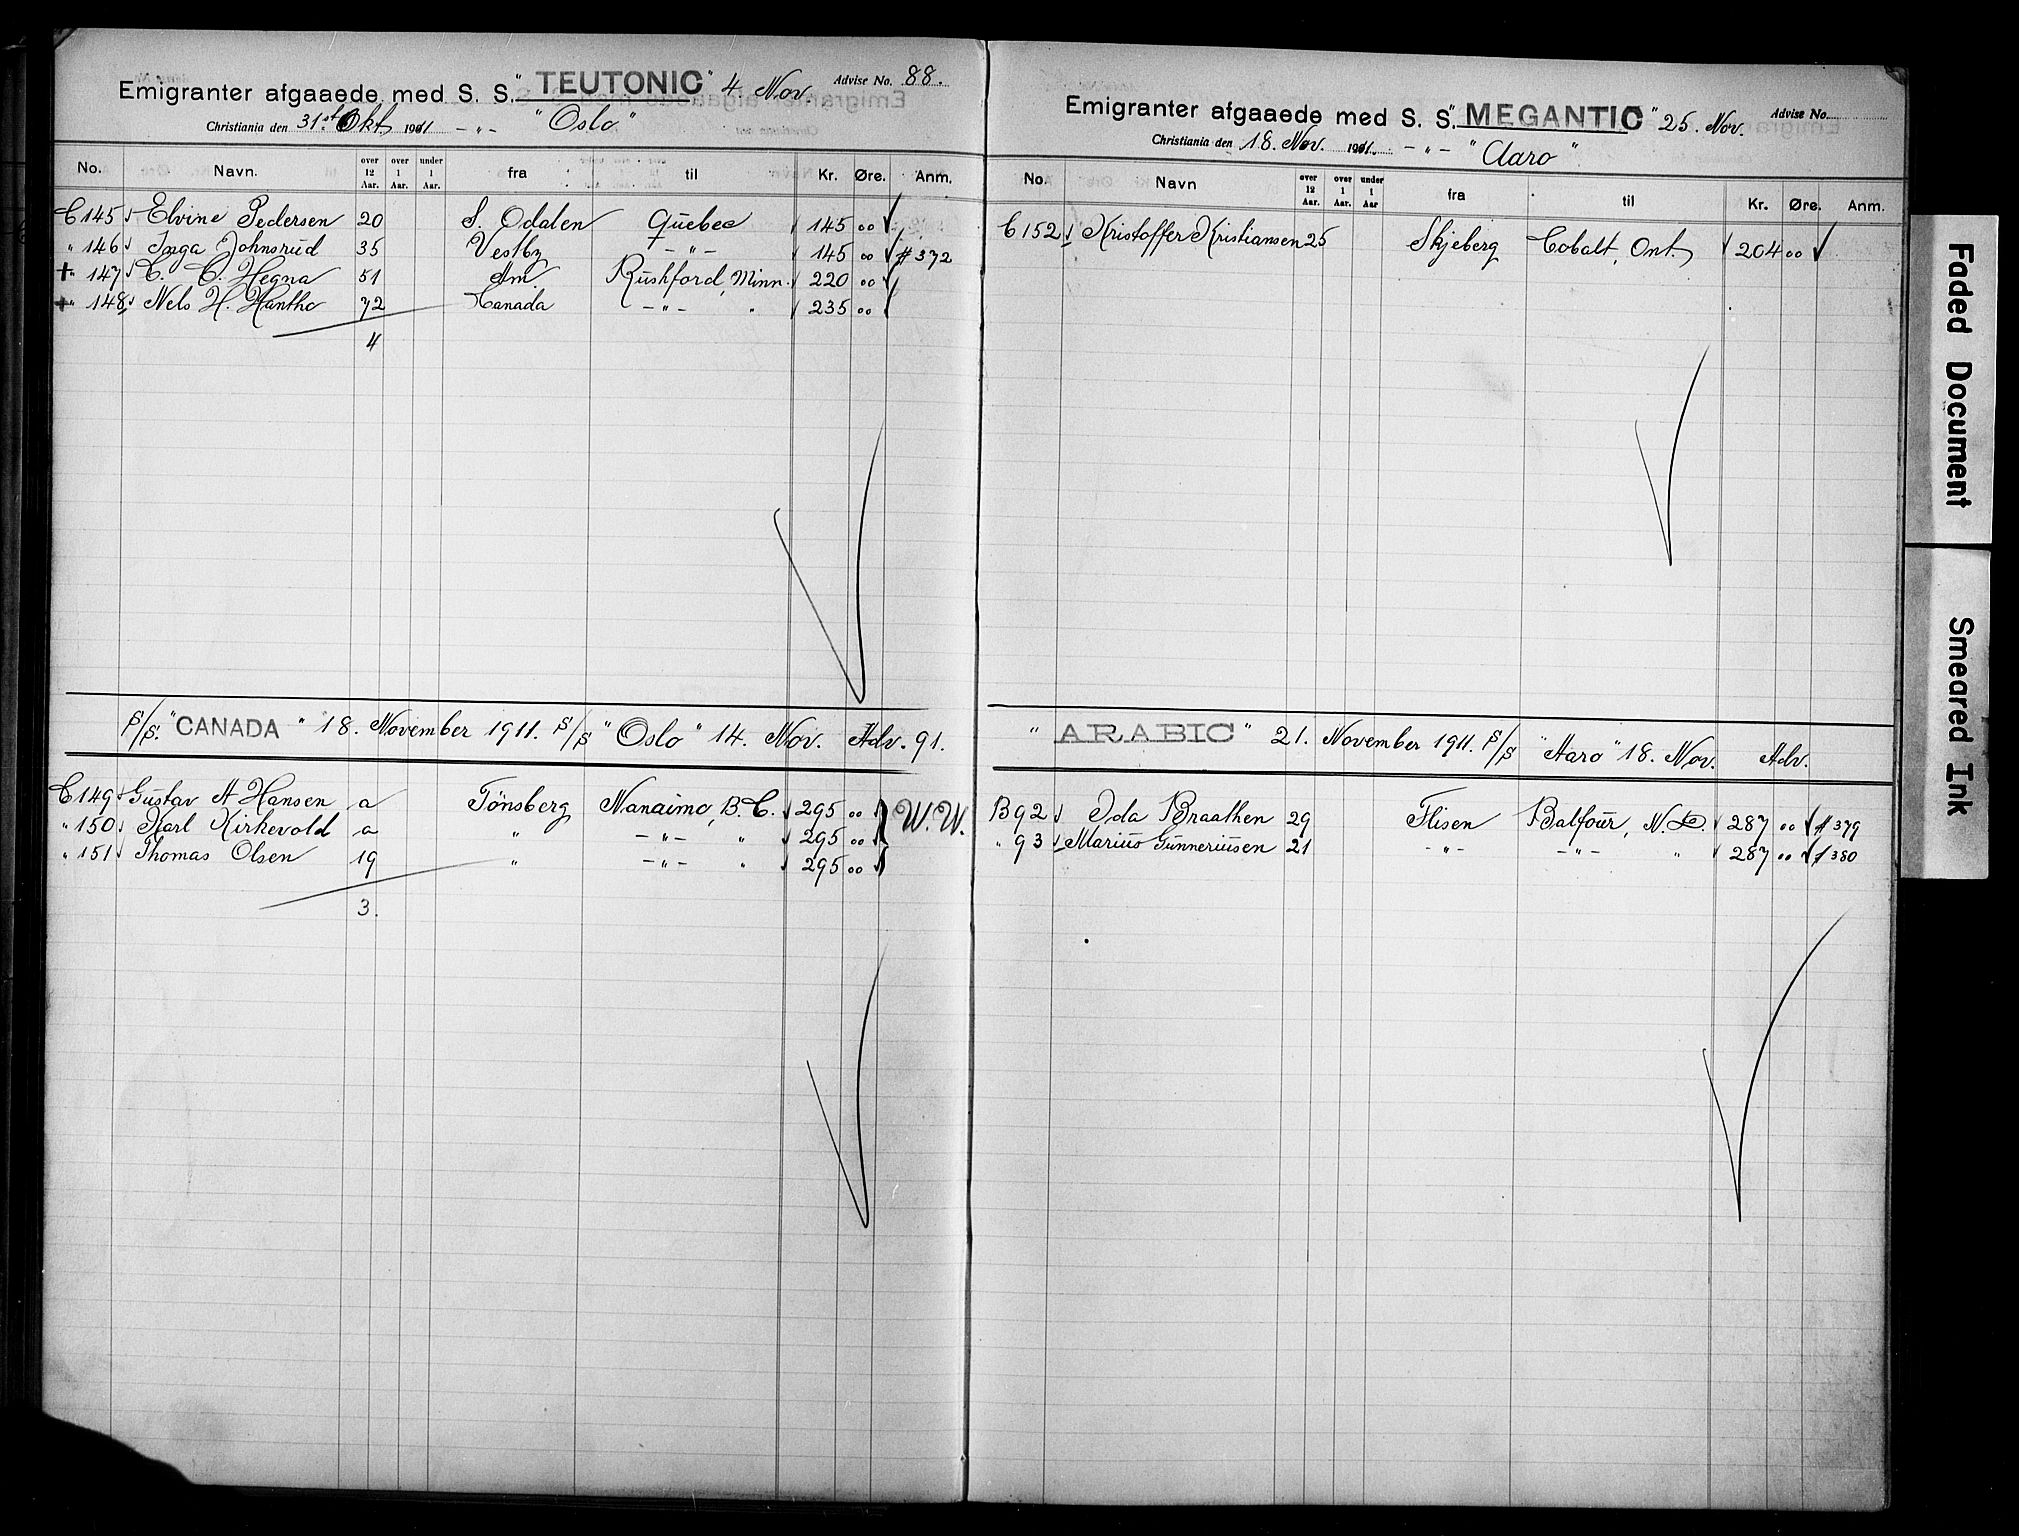 Emigranter afgaaede med S. S. "TEUTONIC" 4. Nov Advise No. 88.
Christiania den 31st Okt 1911 -"- "Oslo"
No. Navn. over 12 Aar. over 1 Aar. under 1 Aar. fra til Kr. Øre. Anm.
C 145 Elvine Pedersen 20 S. Odalen Quebec 145 00
" 146 Inga Johnsrud 35 Vestby -"- 145 00 # 372
+" 147 C. C. Hegna 51 Am. Rushford, Minn. 220 00
+" 148 Nels H. 72 Canada -"- " 235 00
4
S/S. "CANADA" 18. November 1911. S/S "Oslo" 14. Nov. Adv. 91.
C 149 Gustav A Hansen a Tönsberg Nanaimo, B. C. 295 00 W. W.
" 150 Karl Kirkevold a " -"- " 295 00
" 151 Thomas Olsen 19 " -"- " 295 00
3.
Emigranter afgaaede med S. S. "MEGANTIC" 25. Nov. Advise No.
Christiania den 18. Nov. 1911. -"- "Aaro"
No. Navn over 12 Aar. over 1 Aar. under 1 Aar fra til Kr. Øre. Anm.
C 152 Kristoffer Kristiansen 25 Skjeberg Cobalt, Ont. 204 00
"ARABIC" 21. November 1911. S/S "Aaro" 18. Nov. Adv.
B 92 Oda Braathen 29 Flisen Balfour, N. D. 287 00 # 379
" 93 Marius Gunneriusen 21 -"- -"- " 287 00 # 380
Faded Document
Smeared Ink